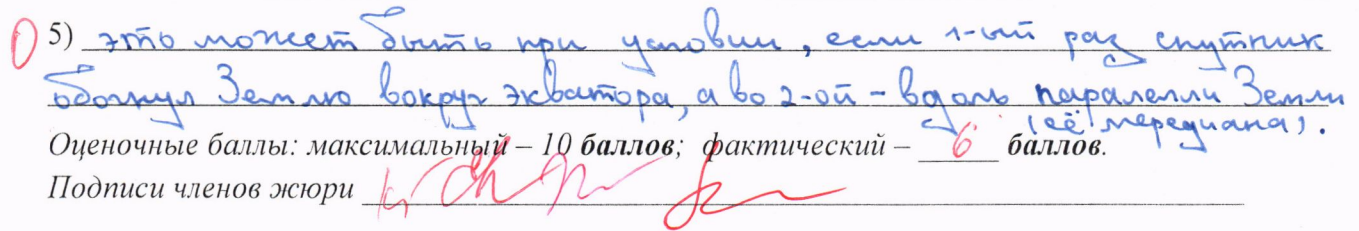 0 5) это может быть при условии, если 1-ый раз спутник
обогнул Землю вокруг экватора, а во 2-ой - вдоль паралелли Земли
(её мередиана).
Оценочные баллы: максимальный – 10 баллов; фактический – 6 баллов.
Подписи членов жюри